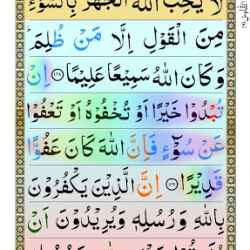 لَا يُحِبُّ اللّٰهُ الْجَهْرَ بِالسُّوْٓءِ
مِنَ الْقَوْلِ اِلَّا مَنْ ظُلِمَ ؕ
وَكَانَ اللّٰهُ سَمِيْعًا عَلِيْمًا ﴿۱۴۸﴾ اِنْ
تُبْدُوْا خَيْرًا اَوْ تُخْفُوْهُ اَوْ تَعْفُوْا
عَنْ سُوْٓءٍ فَاِنَّ اللّٰهَ كَانَ عَفُوًّا
قَدِيْرًا ﴿۱۴۹﴾ اِنَّ الَّذِيْنَ يَكْفُرُوْنَ
بِاللّٰهِ وَرُسُلِهٖ وَيُرِيْدُوْنَ اَنْ